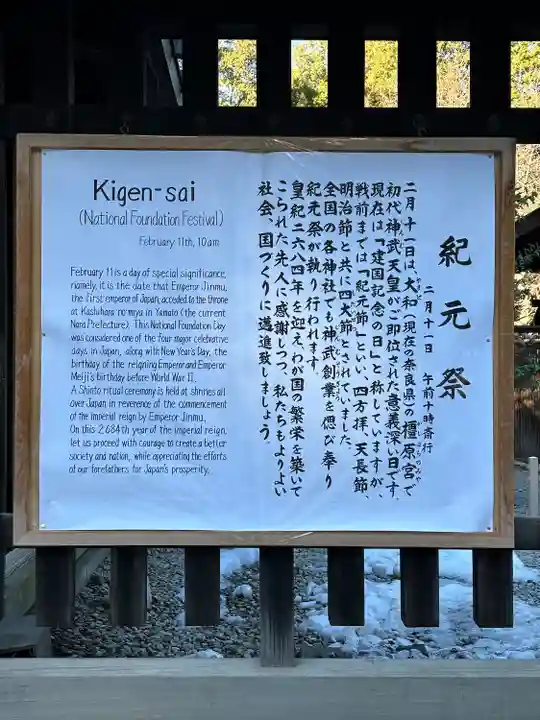 Kigen-sai
(National Foundation Festival)
February 11th, 10am
February 11 is a day of special significance,
namely, it is the date that Emperor Jinmu,
the first emperor of Japan, acceded to the throne
at Kashihara no miya in Yamato (the current
Nara Prefecture). This National Foundation Day
was considered one of the four major celebrative
days in Japan, along with New Year's Day, the
birthday of the reigning Emperor and Emperor
Meiji's birthday before World War II.
A Shinto ritual ceremony is held at shrines all
over Japan in reverence of the commencement
of the imperial reign by Emperor Jinmu.
On this 2684th year of the imperial reign,
let us proceed with courage to create a better
society and nation, while appreciating the efforts
of our forefathers for Japan's prosperity.
紀元祭
二月十一日 午前十時斎行
二月十一日は、大和(現在の奈良県)の橿原宮で
初代神武天皇がご即位された意義深い日です。
現在は「建国記念の日」と称していますが、
戦前までは「紀元節」といい、四方拝、天長節、
明治節と共に四大節とされてしました。
全国の各神社でも神武創業を偲び奉り
紀元祭が執り行われます。
皇紀二六八四年を迎え、わが国の繁栄を築いて
こられた先人に感謝しつつ、私たちもよりよい
社会、国づくりに邁進致しましょう。